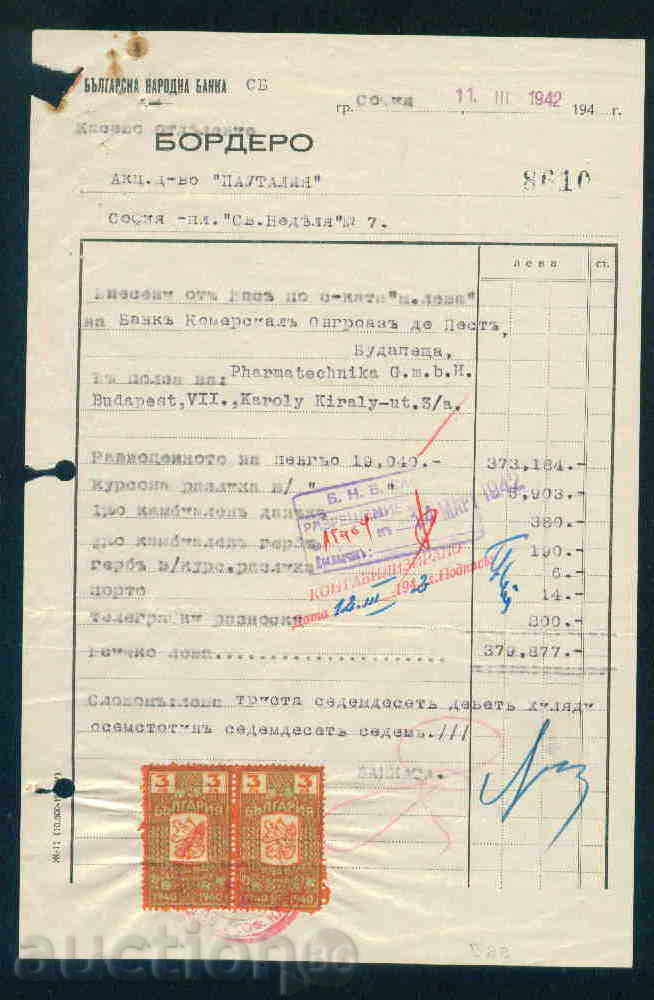 БЪЛГАРСКА НАРОДНА БАНКА СБ
гр. София 11. III 1942 194 г.
Касово отдѣление
БОРДЕРО
Акц. д-во "ПАУТАЛИЯ" 8610
София -пл."Св.Недѣля"№ 7.
лева ст.
Внесени отъ Васъ по с-ката "н.лева"
на Банкъ Комерскалъ Онгроазъ де Пестъ,
Будапеща,
въ полза на: Pharmatechnika G.m.b.H.
Budapest,VII.,Karoly Kiraly-ut.3/a.
Равноценното на пенгьо 19,040.- 373,184.-
Курсова разлика в/ " " 5,903.-
Б. Н. Б.
РАЗРЕШЕНИЕ
МАРТ 1942
380.-
190.-
гербъ в/курс.разлика 6.-
КОНТАБИЛИЗИРАНО
порто 14.-
Дата 12.III 194 г. Подпись
разноски 200.-
Всичко лева 379,877.-
Словомъ:лева триста седемдесеть деветь хиляди
осемстотинъ седемдесеть седемъ.///
БАНКАТА.
3 3 3 3
БЪЛГАРИЯ БЪЛГАРИЯ
1940 1940 1940
auction